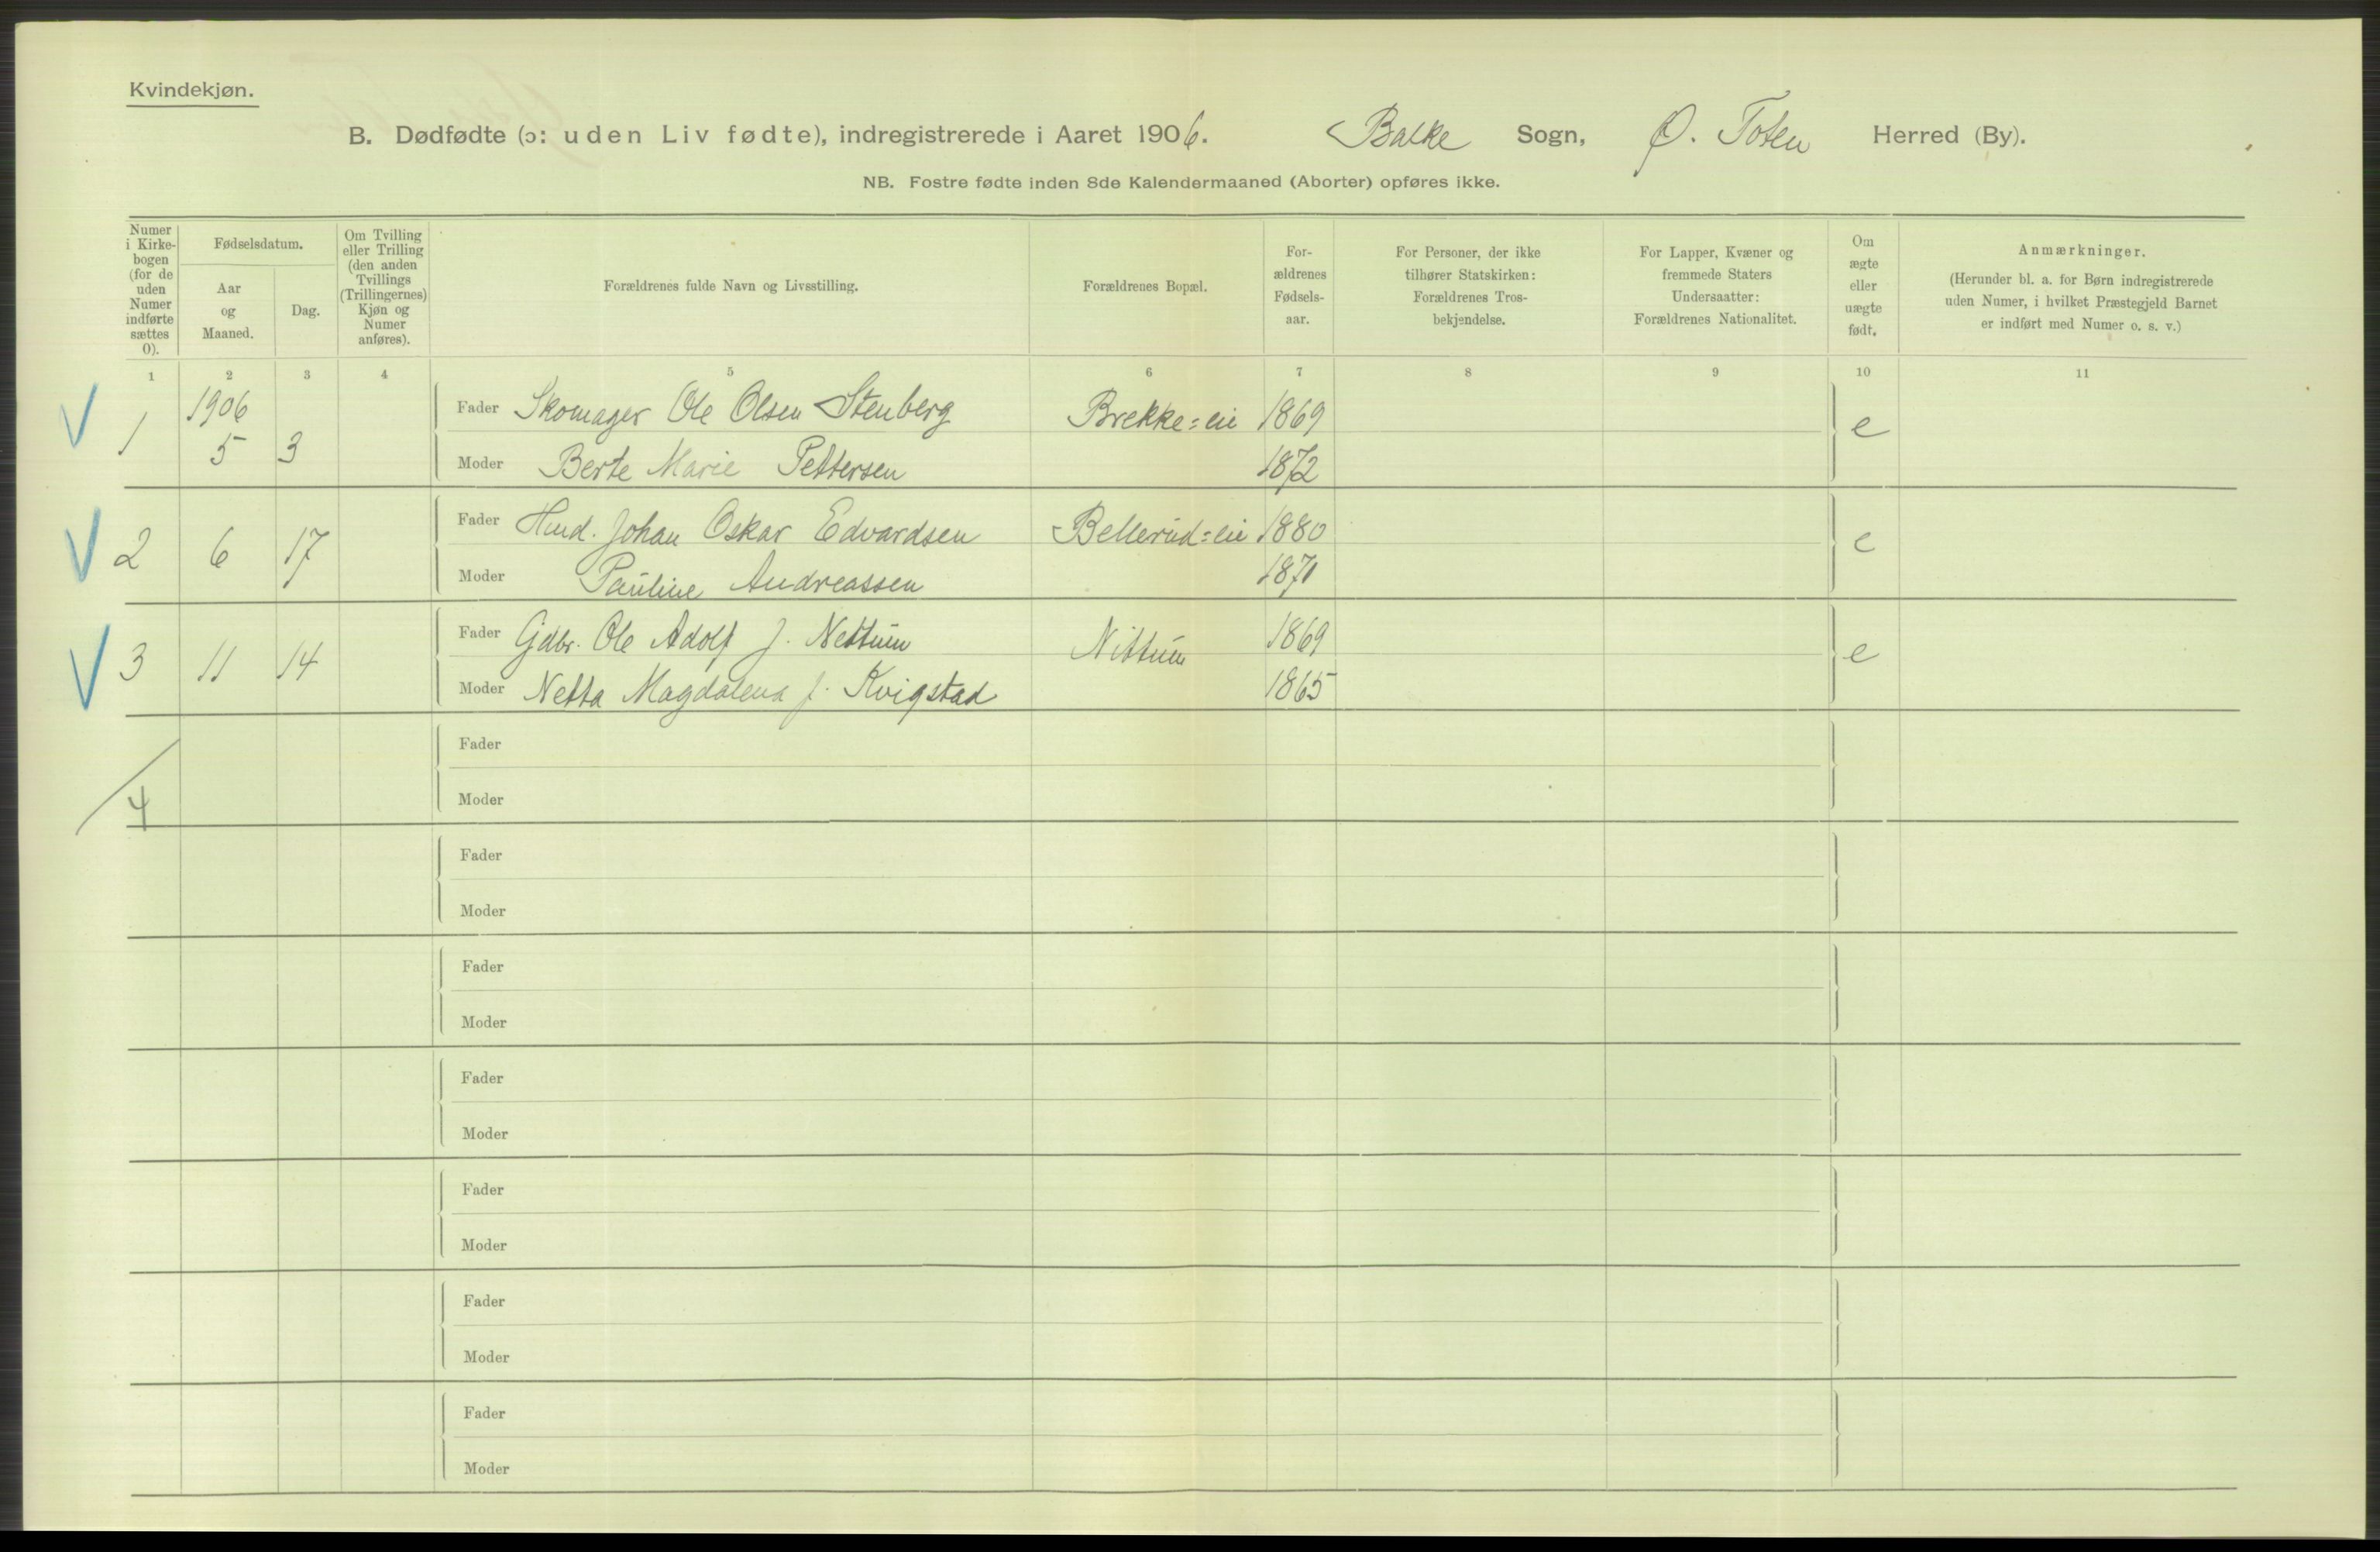 Kvindekjøn.
B. Dødfødte (ɔ: uden Liv fødte), indregistrerede i Aaret 1906. Balke Sogn, Ø. Toten Herred (By).
NB. Fostre fødte inden 8de Kalendermaaned (Aborter) opføres ikke.
Numer i Kirke-bogen (for de uden Numer indførte sættes 0).
Fødselsdatum.
Aar og Maaned.
Dag.
Om Tvilling eller Trilling (den anden Tvillings (Trillingernes) Kjøn og Numer anføres).
Forældrenes fulde Navn og Livsstilling.
Forældrenes Bopæl.
For-ældrenes Fødsels-aar.
For Personer, der ikke tilhører Statskirken: Forældrenes Tros-bekjendelse.
For Lapper, Kvæner og fremmede Staters Undersaatter: Forældrenes Nationalitet.
Om ægte eller uægte født.
Anmærkninger.
(Herunder bl. a. for Børn indregistrerede uden Numer, i hvilket Præstegjeld Barnet er indført med Numer o. s. v.)
1 2 3 4 5 6 7 8 9 10 11
1906
1 5 3 Fader Skomager Ole Olsen Stenberg Brekke=eie 1869 e
Moder Berte Marie Pettersen 1872
2 6 17 Fader Hmd. Johan Oskar Edvardsen Bellerud=eie 1880 e
Moder Pauline Andreassen 1871
3 11 14 Fader Gdbr. Ole Adolf J. Nettum Nittum 1869 e
Moder Netta Magdalena f. Kvigstad 1865
Fader
4
Moder
Fader
Moder
Fader
Moder
Fader
Moder
Fader
Moder
Fader
Moder
Fader
Moder